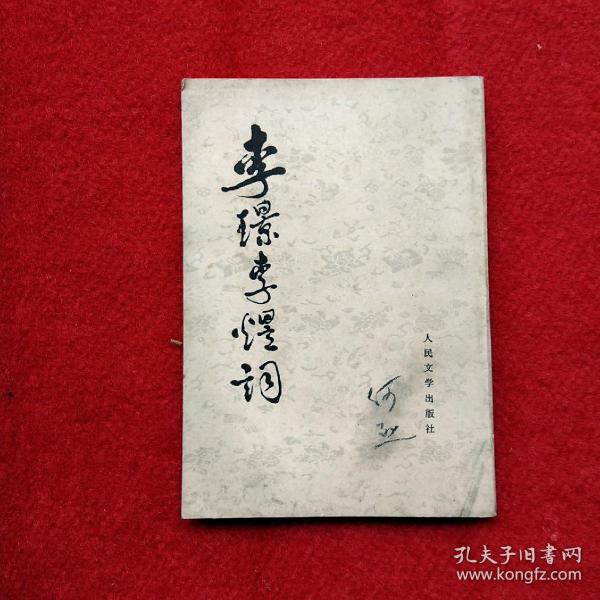 李璟李煜詞
人民文学出版社
何
孔夫子旧書网
www.kongfz.com